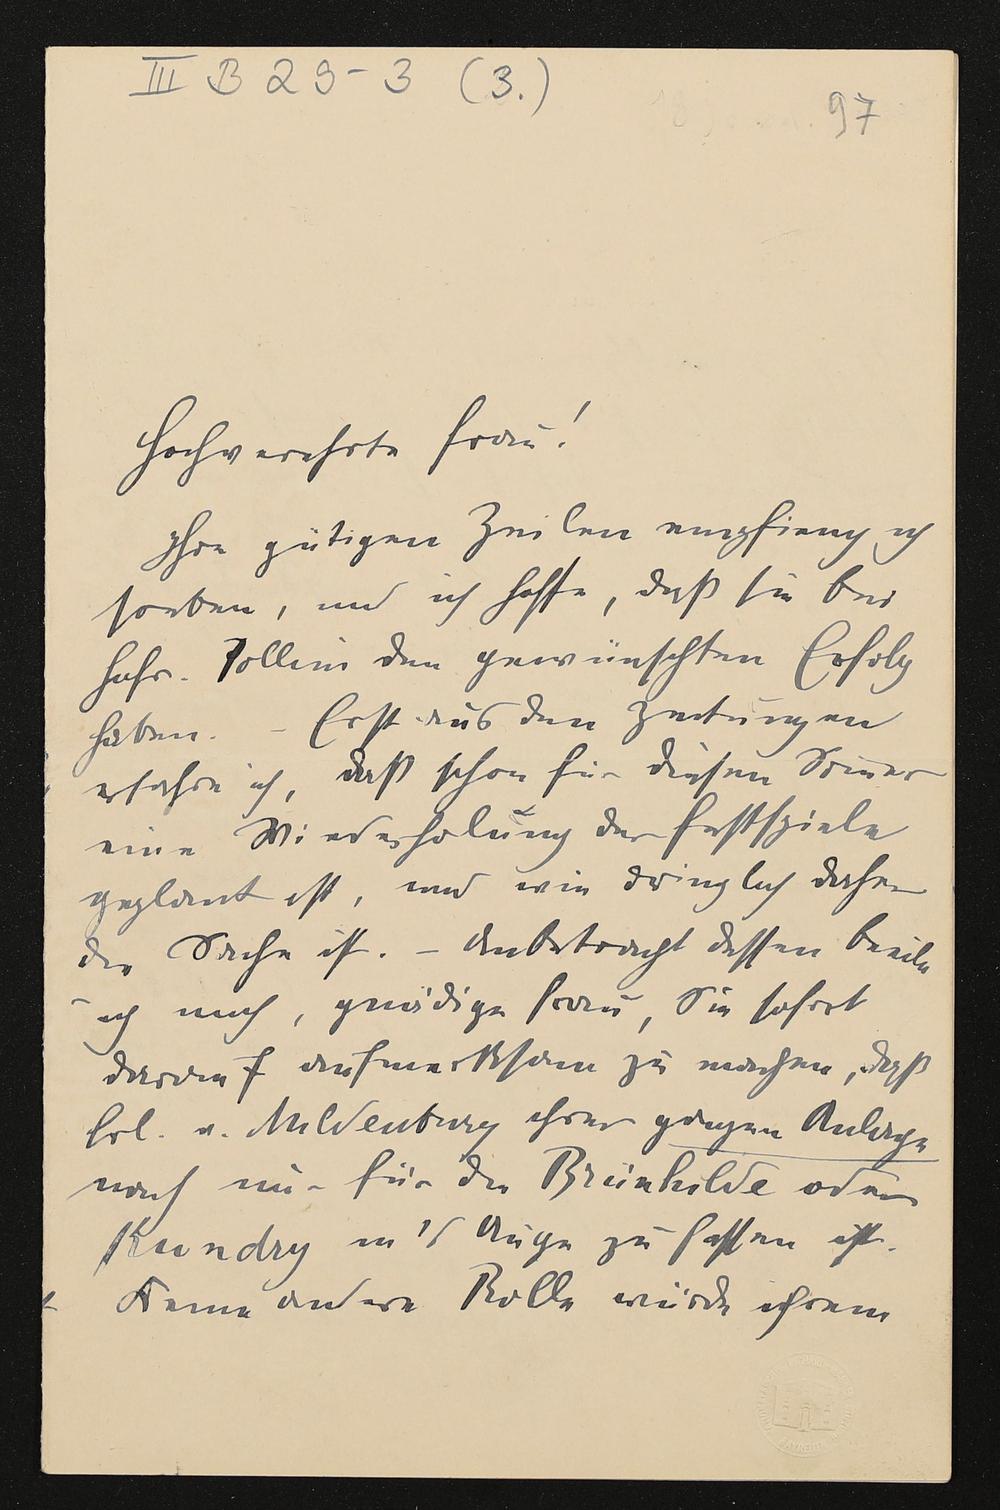 III B 29-3 (3.)
97
Hochverehrte Frau!
Ihre gütigen Zeilen empfieng ich
soeben, und ich hoffe, daß sie bei
Hofr. Pollini den gewünschten Erfolg
haben. – Erst aus den Zeitungen
erfahre ich, daß schon für diesen Sommer
eine Wiederholung der Festspiele
geplant ist, und wie dringlich daher
die Sache ist. – Anbetracht dessen beeile
ich mich, gnädige Frau, Sie sofort
darauf aufmerksam zu machen, daß
Frl. v. Mildenburg ihrer ganzen Anlage
nach nur für die Brünhilde oder
Kundry in's Auge zu fassen ist.
Keine andere Rolle würde ihrem